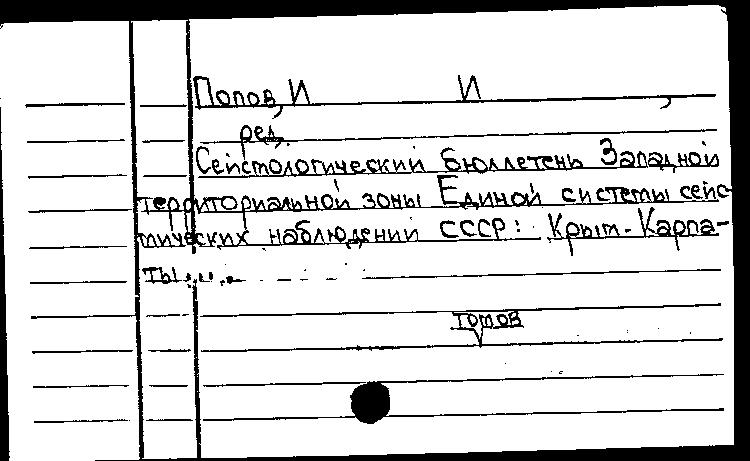 Попов, И И ,
ред.
Сейсмологический бюллетень Западной
территориальной зоны Единой системы сейс-
мических наблюдений СССР: Крым-Карпа-
ты....
томов